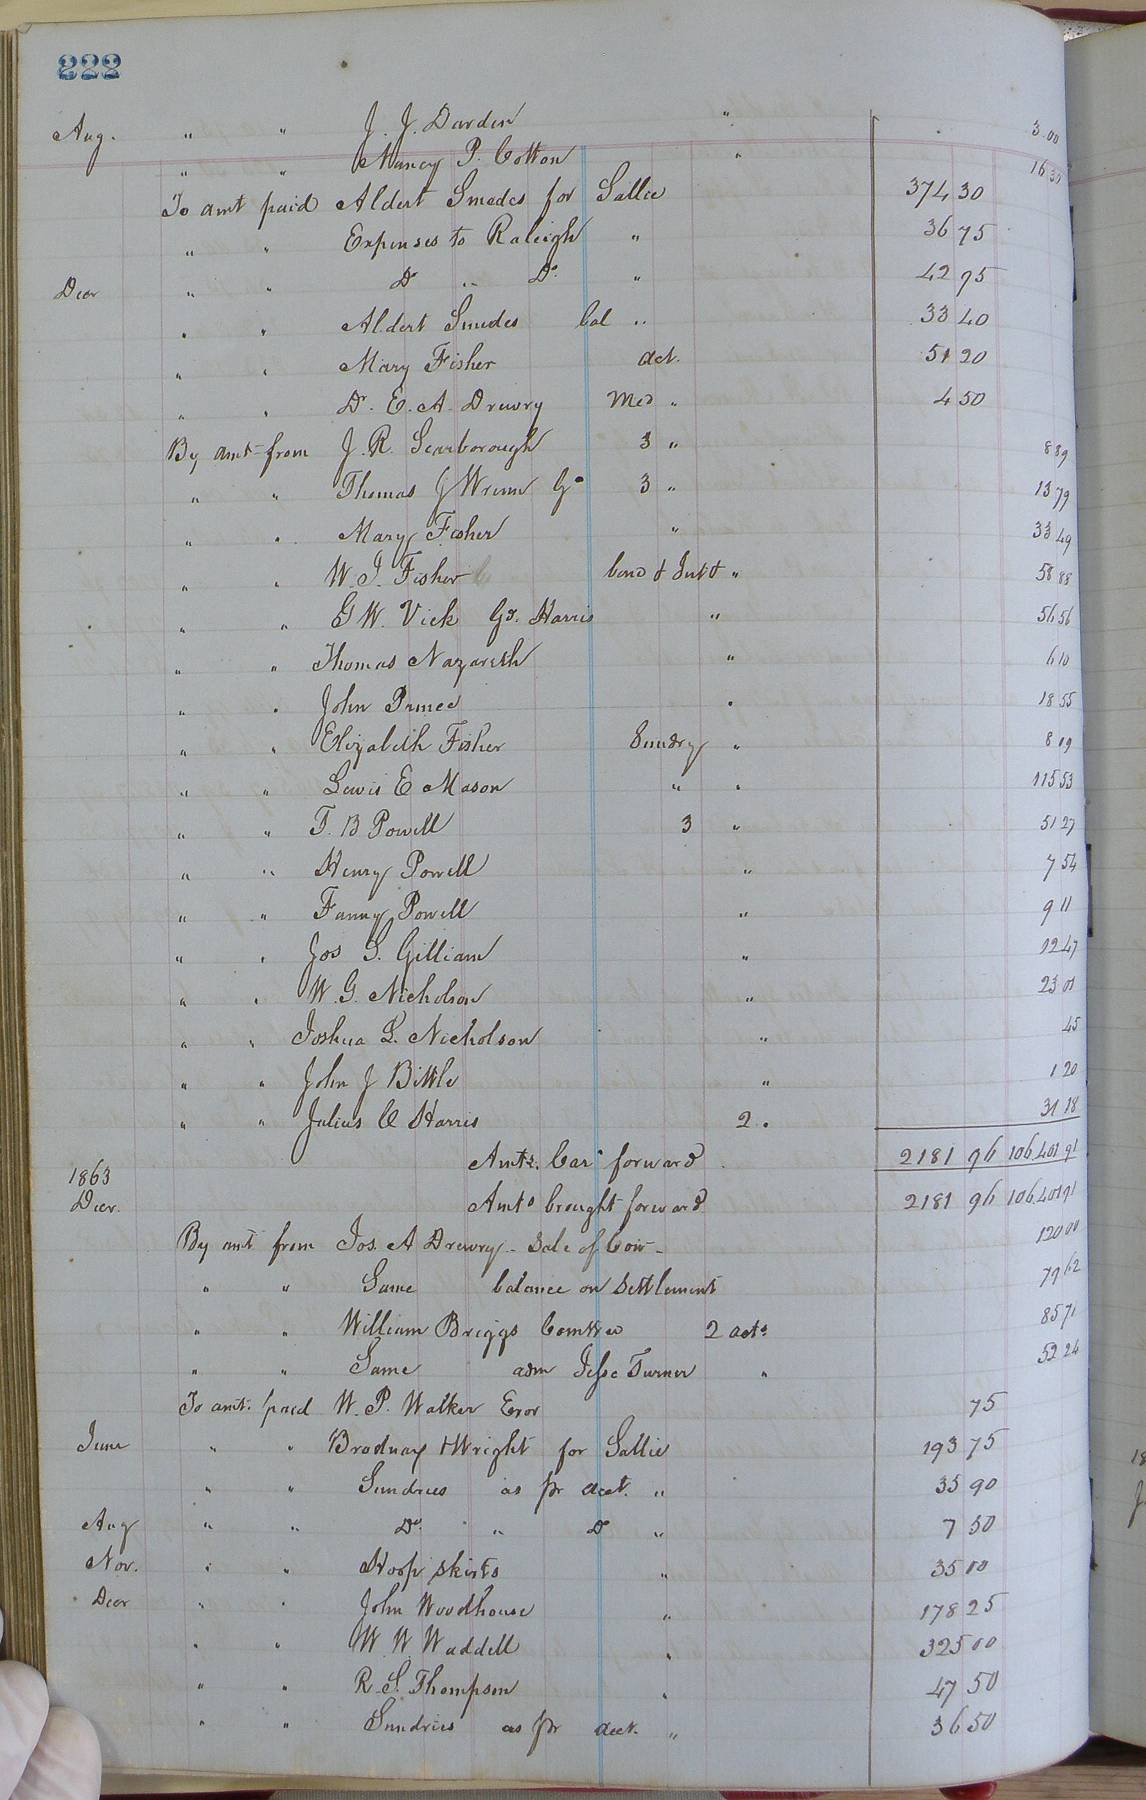 222
Aug. " " J. J. Darden " 3.00
" " Nancy P. Cotton " 16 30
To amt paid Aldert Smedes for Sallie 374 30
" " Expenses to Raleigh " 36 75
Decr " " Do " Do. " 42 95
" " Aldert Smedes bal " 33 40
" " Mary Fisher act. 51 20
" " Dr. E. A. Drewry Med " 4 50
By amt from J. R. Scarborough 3 " 8 89
" " Thomas J Wrenn Go 3 " 13 79
" " Mary Fisher " 33 49
" " W. J. Fisher bond & Intt " 58 88
" " G W. Vick Gd. Harris " 56 56
" " Thomas Nazareth " 6 10
" " John Prince " 18 55
" " Elizabeth Fisher Sundry " 8 09
" " Lewis E Mason " " 115 53
" " T. B Powell 3 " 51 27
" " Henry Powell " 7 54
" " Fanny Powell " 9 11
" " Jos S. Gilliam " 12 47
" " W. G. Nicholson " 23 01
" " Joshua L. Nicholson " 45
" " John J Bittle " 1 20
" " Julius C Harris 2 . 31 18
Amts. Car forward 2181 96 106,401 91
1863
Decr. Amts brought forward 2181 96 106,401 91
By amt from Jos. A Drewry - Sale of Cow - 120 00
" " Same balance on Settlement 79 62
" " William Briggs Comttee 2 acts 85 71
" " Same adm Jesse Turner " 52 24
To amt. paid W. P. Walker Exor 75
June " " Brodnax & Wright for Sallie 193 75
" " Sundries as pr acct. " 35 90
Aug " " Do. " Do " 7 50
Nov. " " Hoop skirts " 35 00
Decr " " John Woodhouse " 178 25
" " W. W Waddell " 325 00
" " R. S. Thompson " 47 50
" " Sundries as pr acct. " 36 50